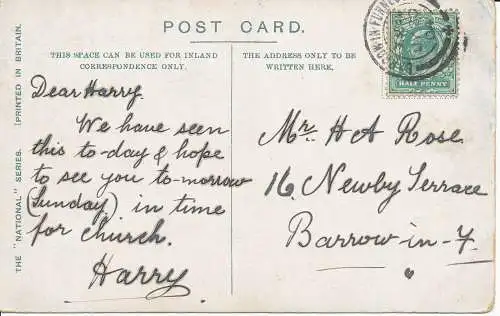 POST CARD.
THIS SPACE CAN BE USED FOR INLAND
CORRESPONDENCE ONLY.
THE ADDRESS ONLY TO BE
WRITTEN HERE.
HALF PENNY
THE "NATIONAL" SERIES. (PRINTED IN BRITAIN.
Dear Harry.
We have seen
this to-day & hope
to see you to-morrow
(Sunday) in time
for church.
Harry
Mr. H A Rose
16, Newby Terrace
Barrow-in-F
"